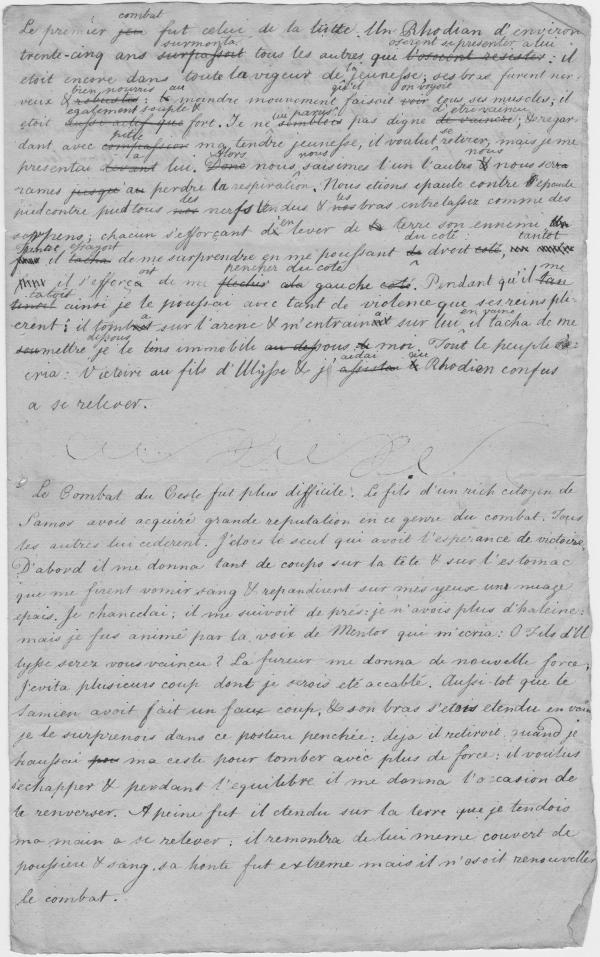 combat
Le premier jeu fut celui de la lutte. Un Rhodian d'environ
surmonta oserent se presenter a lui
trente-cinq ans surpassoit tous les autres que l'osoient resister: il
etoit encore dans toute la vigeur de la jeunesse; ses bras furent ner-
bien nourris au qu'il on voyoit
veux & robustes: le moindre mouvement faisoit voir tous ses muscles; il
egalement souple & lui parus d'etre vaincu
etoit aussi actif que fort. Je ne semblois pas digne de vaincre; & regar-
pitie se
dant avec compassion ma tendre jeunesse, il voulut retirer, mais je me
a Alors nous nous
presentai devant lui. Donc nous saisimes l'un l'autre & nous serra
rames jusqu'au perdre la respiration. Nous etions epaule contre l'epaule
les les
pied contre pied tous nos nerfs tendus & nos bras entrelassez comme des
en
serpens; chacun s'efforçant d' lever de la terre son ennemi
essayoit du coté tantot
il tacha de me surprendre en me poussant du droit coté,
ant pencher du coté me
il s'efforça de me flechir a la gauche coté. Pendant qu'il
tatoit
tenoit ainsi je le poussai avec tant de violence que ses reins pli-
a a en vaine
erent: il tombat sur l'arene & m'entrainat sur lui, il tacha de me
dessous
soumettre je le tins immobile au dessous de moi. Tout le peuple
aidai
cria: Victoire au fils d'Ulysse & j'assistai le Rhodien confus
a se relever.
Le Combat du Ceste fut plus difficile. Le fils d'un rich citoyen de
Samos avoit acquiré grande reputation en ce genre du combat. Tous
les autres lui cederent. J'etois le seul qui avoit l'esperance de victoire.
D'abord il me donna tant de coups sur la tête & sur l'estomac
que me firent vomir sang & repandirent sur mes yeux une nuage
epais. Je chancelai; il me suivoit de près: je n'avois plus d'haleine:
mais je fus animé par la voix de Mentor qui m'ecria: O Fils d'U
lysse serez vous vaincu? La fureur me donna de nouvelle force;
J'evita plusieurs coup dont je serois eté accablé. Aussi tot que le
Samien avoit fait un faux coup, & son bras s'etois etendu en vain
je le surprenois dans ce posture penchée: deja il retiroit, quand je
haussai ma ceste pour tomber avec plus de force: il voulus
s'echapper & perdant l'equilibre il me donna l'ocasion de
le renverser. A peine fut il etendu sur la terre que je tendois
ma main a se relever: il remontra de lui meme couvert de
poussiere & sang. sa honte fut extreme mais il n'osoit renouveller
le combat.